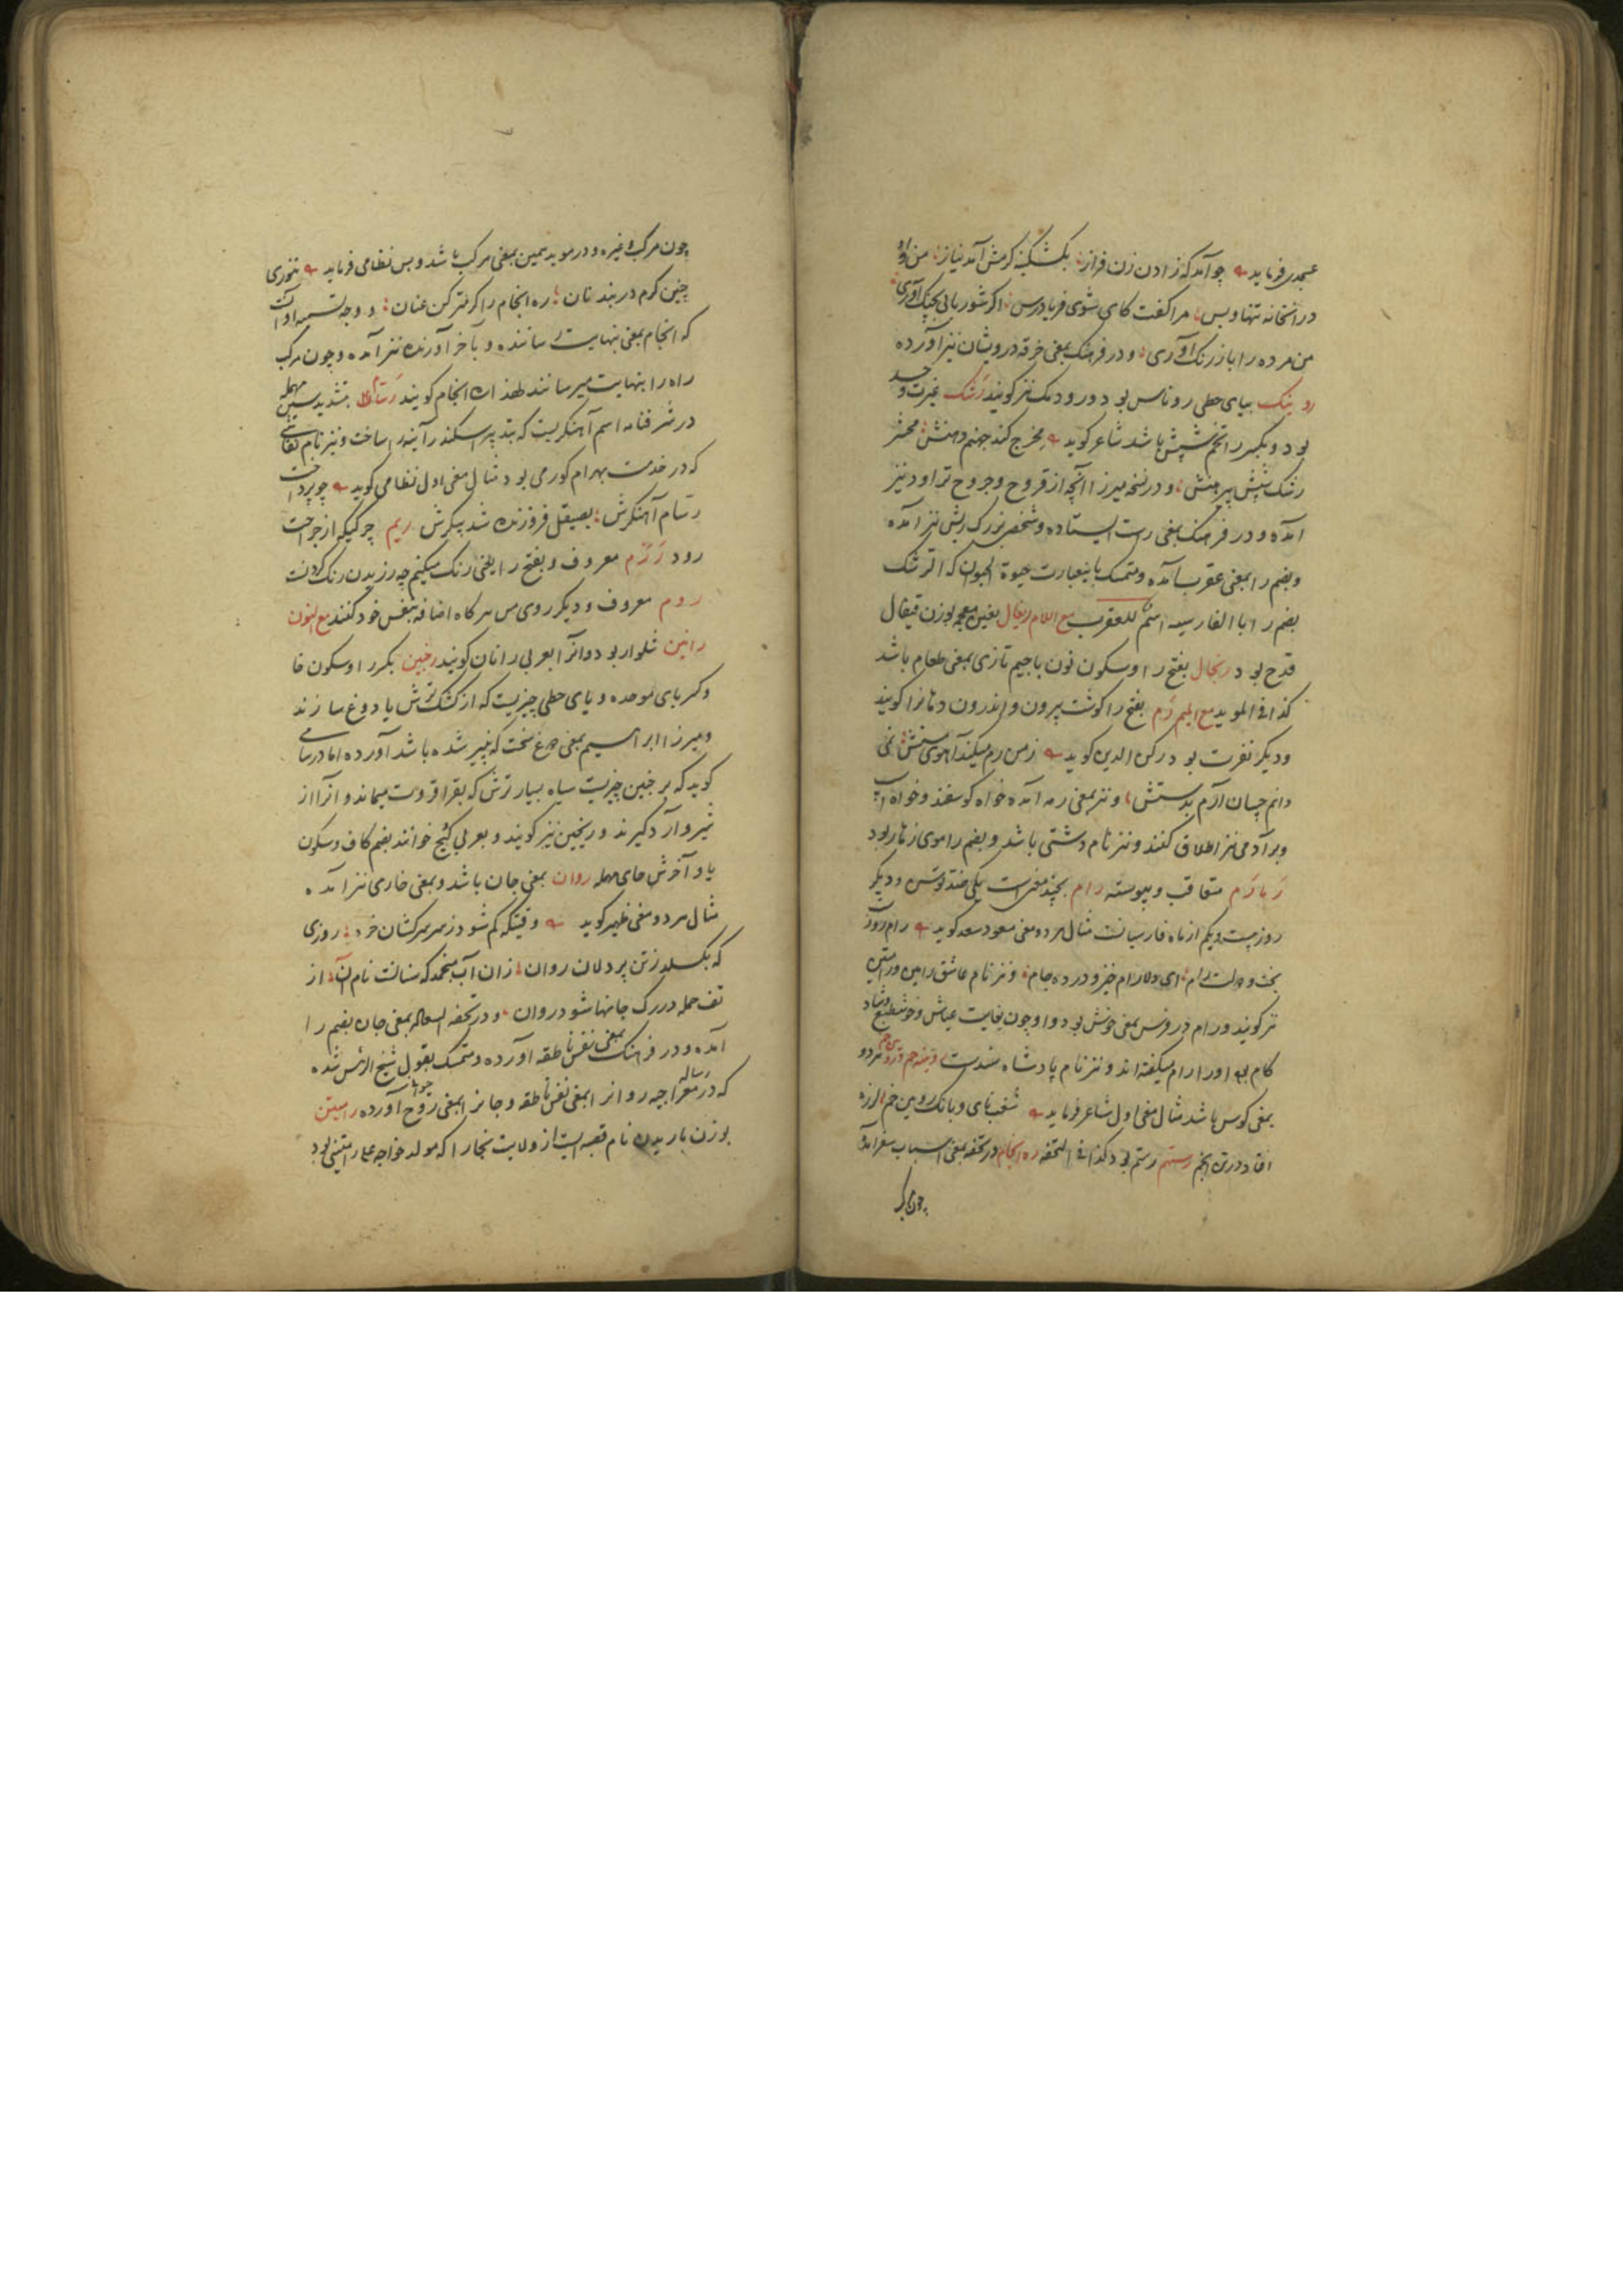 عسجدی فرماید چو آمد که زادن زن فراز بکشکینه کرمش آمد نیاز من و او
در انخانه تنها و بس مرا گفت کای شوی فریادرس اکر شوربایی بچنک آوری
من مرده را باز رنک آوری و در فرهنک بمعنی خرقه درویشان نیز آورده
روینک بیای حطی روناس بود و رودنک نیز کویند رشک غیرت و حسد
بود و بکسر را تخم شپش باشد شاعر کوید مخرج کند جهنم دهنش محشر
رشک شپش پیرهنش و در نسخه میرزا آنچه از قروح و جروح تراود نیز
آمده و در فرهنک بمعنی راست ایستاده و شخص بزرک ریش نیز آمده
و بضم را بمعنی عقرب آمده و متمسک باینعبارت حیوة الحیوان که الرشک
بضم را بالفارسیه اسم للعقرب مع اللام ریغال بغین معجمه بوزن قیفال
قدح بود رنجال بفتح را و سکون نون با جیم تازی بمعنی طعام باشد
کذا فی المؤید مع المیم رم بفتح را کوشت بیرون و اندرون دهانرا کویند
و دیکر نفرت بود رکن الدین کوید ز من رم میکند آهوی مستش نمی
دانم چسان آرم بدستش و نیز بمعنی رمه آمده خواه کوسفند و خواه اسپ
و بر آدمی نیز اطلاق کنند و نیز نام دشتی باشد و بضم را موی زهار بود
رمارم متعاقب و پیوسته رام بچند معنی است یکی ضد توسن و دیکر
روز بیست و یکم از ماه فارسیان است مثال هر دو معنی مسعود سعد کوید رام روز
بخت و دولت رام ای دلارام خیز و در ده جام و نیز نام عاشق ویس و رامتین
نیز کویند و رام در فرس بمعنی خوش بود و او چون بغایت عیاش و خوشطبع و شاد
کام بود او را رام میکفته اند و نیز نام پادشاه سندست روئینه خم و روئین خم هر دو
بمعنی کوس باشد مثال معنی اول شاعر فرماید شغب نای و بانک روئین خم لرزه
افتاد در تن انجم رستهم رستم بود کذا فی التحفه ره انجام در تحفه بمعنی اسباب سفر آمده
چون مرکب
چون مرکب و غیره و در مؤید همین بمعنی مرکب باشد و بس نظامی فرماید تنوری
چنین کرم در بند نان ره انجام را کرمتر کن عنان و وجه تسمیه او آنست
که انجام بمعنی بنهایت رساننده و بآخر آورنده نیز آمده و چون مرکب
راه را بنهایت میرساند لهذا ره انجام کویند رسام بتشدید سین مهمله
در شرفنامه اسم آهنکریست که بتدبیر اسکندر آینه را ساخت و نیز نام نقاشی
که در خدمت بهرام کور می بود مثال معنی اول نظامی کوید چو پرداخت
رسام آهنکرش بصیقل فروزنده شد پیکرش ریم چرکیکه از جراحت
رود رزم معروف و بفتح را یعنی رنک میکنم چه رزیدن رنک کردنست
روم معروف و دیکر روی من هرکاه اضافه بنفس خود کنند مع النون
رانین شلوار بود و آنرا بعربی رانان کویند رخبین بکسر را و سکون خا
و کسر بای موحده و یای حطی چیزیست که از کشک ترش یا دوغ سازند
و میرزا ابراهیم بمعنی دوغ سخت که پنیر شده باشد آورده اما در سامی
کوید که رخبین چیزیست سیاه بسیار ترش که بقراقروت میماند و آنرا از
شیر و آرد کیرند و ریخبین نیز کویند و بعربی کیح خوانند بضم کاف و سکون
یا و آخرش حای مهمله روان بمعنی جان باشد و بمعنی جاری نیز آمده
مثال هر دو معنی ظهیر کوید وقتیکه کم شود ز سر سرکشان خرد روزی
که بکسلد ز تن پردلان روان زان آب منجمد که سنانست نام آن از
تف حمله در رک جانها شود روان و در تحفة السعاده بمعنی جان بضم را
آمده و در فرهنک بمعنی نفس ناطقه آورده و متمسک بقول شیخ الرئیس شده
که در رساله معراجیه روانرا بمعنی نفس ناطقه و جانرا بمعنی روح حیوانی آورده رامیتن
بوزن باریدن نام قصبه ایست از ولایت بخارا که مولد خواجه علی رامتینی بود